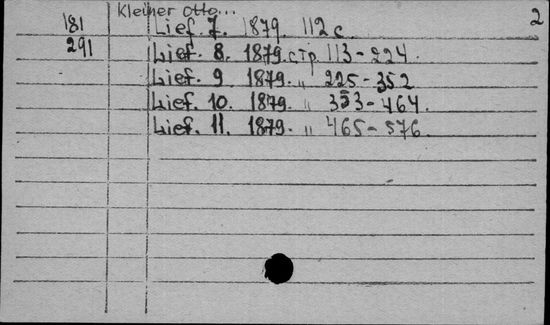 Kleiner Otto... 2
181 Lief. 7. 1879. 112 c.
291 Lief. 8. 1879. стр. 113-224.
Lief. 9 1879. " 225-352
Lief. 10. 1879. " 353-464.
Lief. 11. 1879. " 465-576.